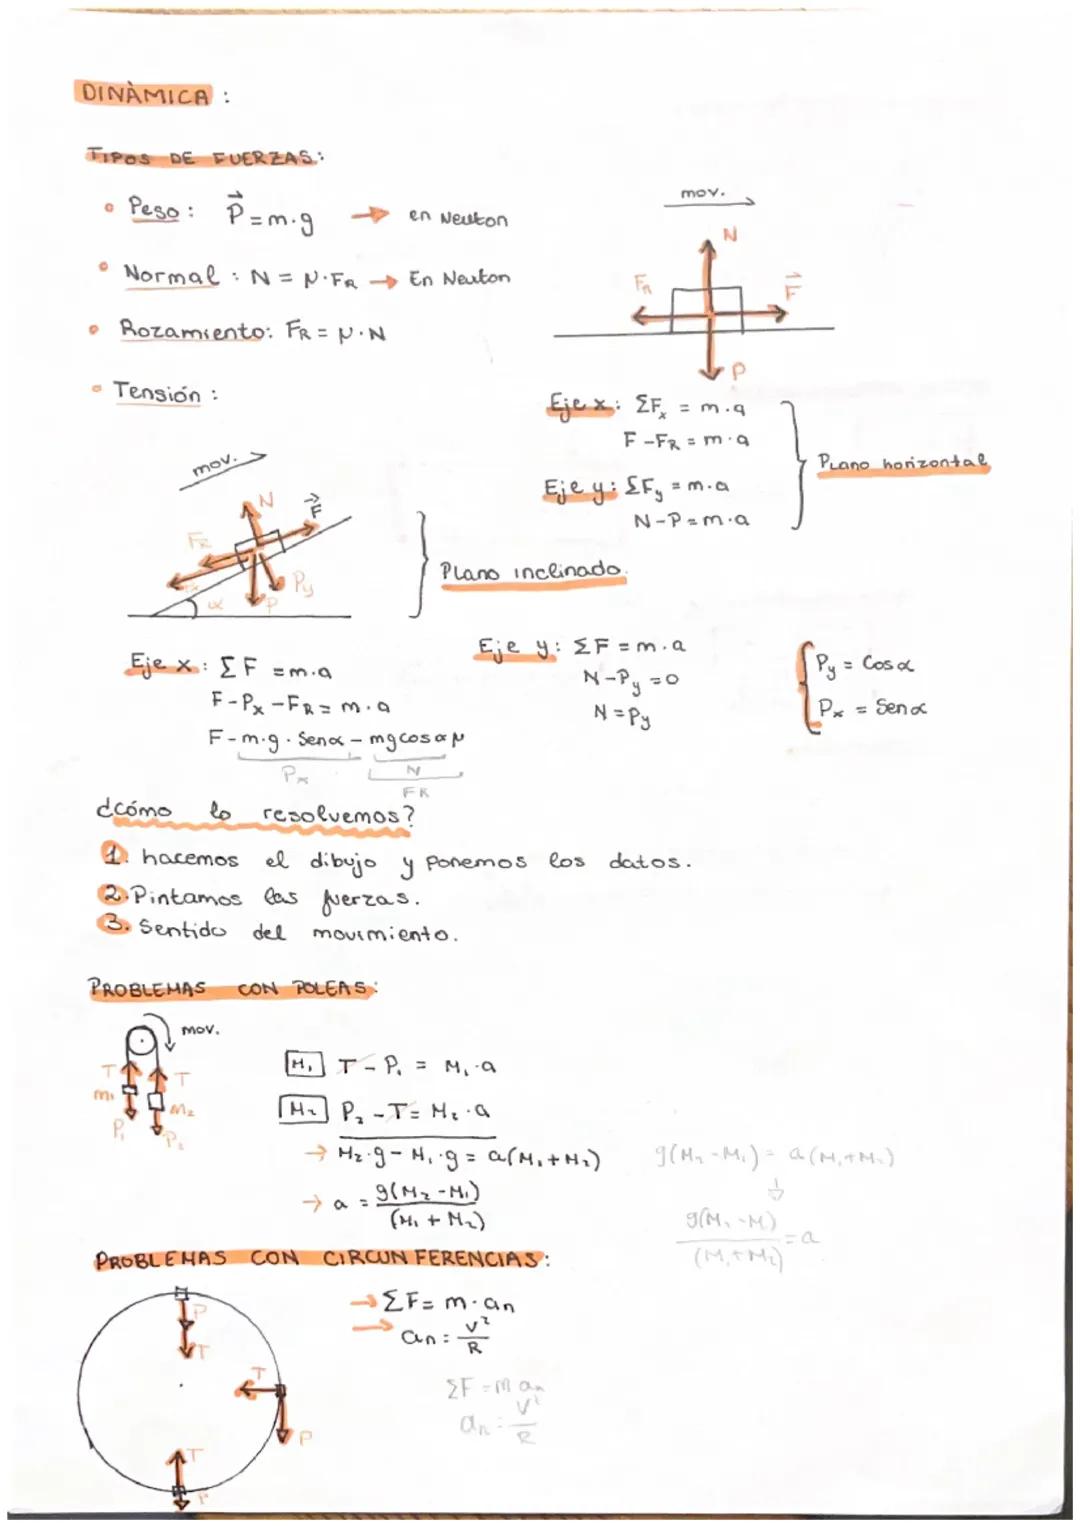 DINÀMICA :
TIPOS DE FUERZAS:
Peso : P = m·g → en Neuton
Normal : N = μ·FR → En Neuton
Rozamiento: FR = μ·N
Tensión :
mov.
N
FR
F
P
Eje x: ΣFx = m·a
F - FR = m·a
Eje y: ΣFy = m·a
N - P = m·a
Plano horizontal
mov.
N
F
FR
Px
Py
α
P
Plano inclinado.
Eje x: ΣF = m·a
F - Px - FR = m·a
F - m·g·Senα - mg cosα μ
Px
N
FR
Eje y: ΣF = m·a
N - Py = 0
N = Py
Py = Cosα
Px = Senα
¿cómo lo resolvemos?
1. hacemos el dibujo y ponemos los datos.
2. Pintamos las fuerzas.
3. Sentido del movimiento.
PROBLEMAS CON POLEAS:
mov.
T
T
m1
M2
P1
P2
M1 T - P1 = M1·a
M2 P2 - T = M2·a
→ M2·g - M1·g = a(M1 + M2)
→ a = g(M2 - M1)
(M1 + M2)
g(M2 - M1) = a(M1 + M2)
g(M2 - M) = a
(M1 + M2)
PROBLEMAS CON CIRCUNFERENCIAS:
→ ΣF = m·an
→ an = v²
R
ΣF = m an
an = v²
R
P
T
T
P
T
P